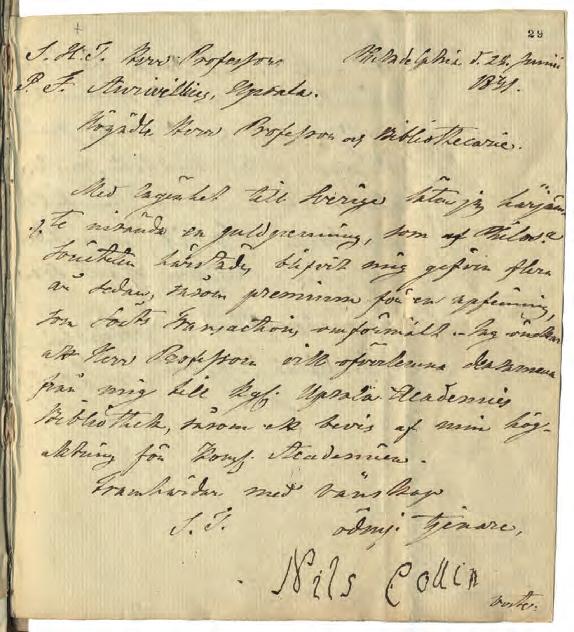 29
S. H. T. Herr Professor Philadelphia d. 28. Junii
P. F. Aurivillius, Upsala. 1831.
Högädle Herr Professor och Bibliothecarie.
Med lägenhet till Sverige låter jag härjäm-
te nisända en guldpenning, som af Philos.
Societeten härstädes blifvit mig gifven flera
år sedan, såsom premium för en upfinning,
som Socts Transactions omförmält. Jag önskar
att Herr Professorn vill öfverlemna densamma
från mig till Kgl. Upsala Academies
Bibliothek, såsom ett bevis af min hög-
aktning för Kongl. Academien.
Framhärdar med vänskap
S. T. ödmj. tjenare,
Nils Collin